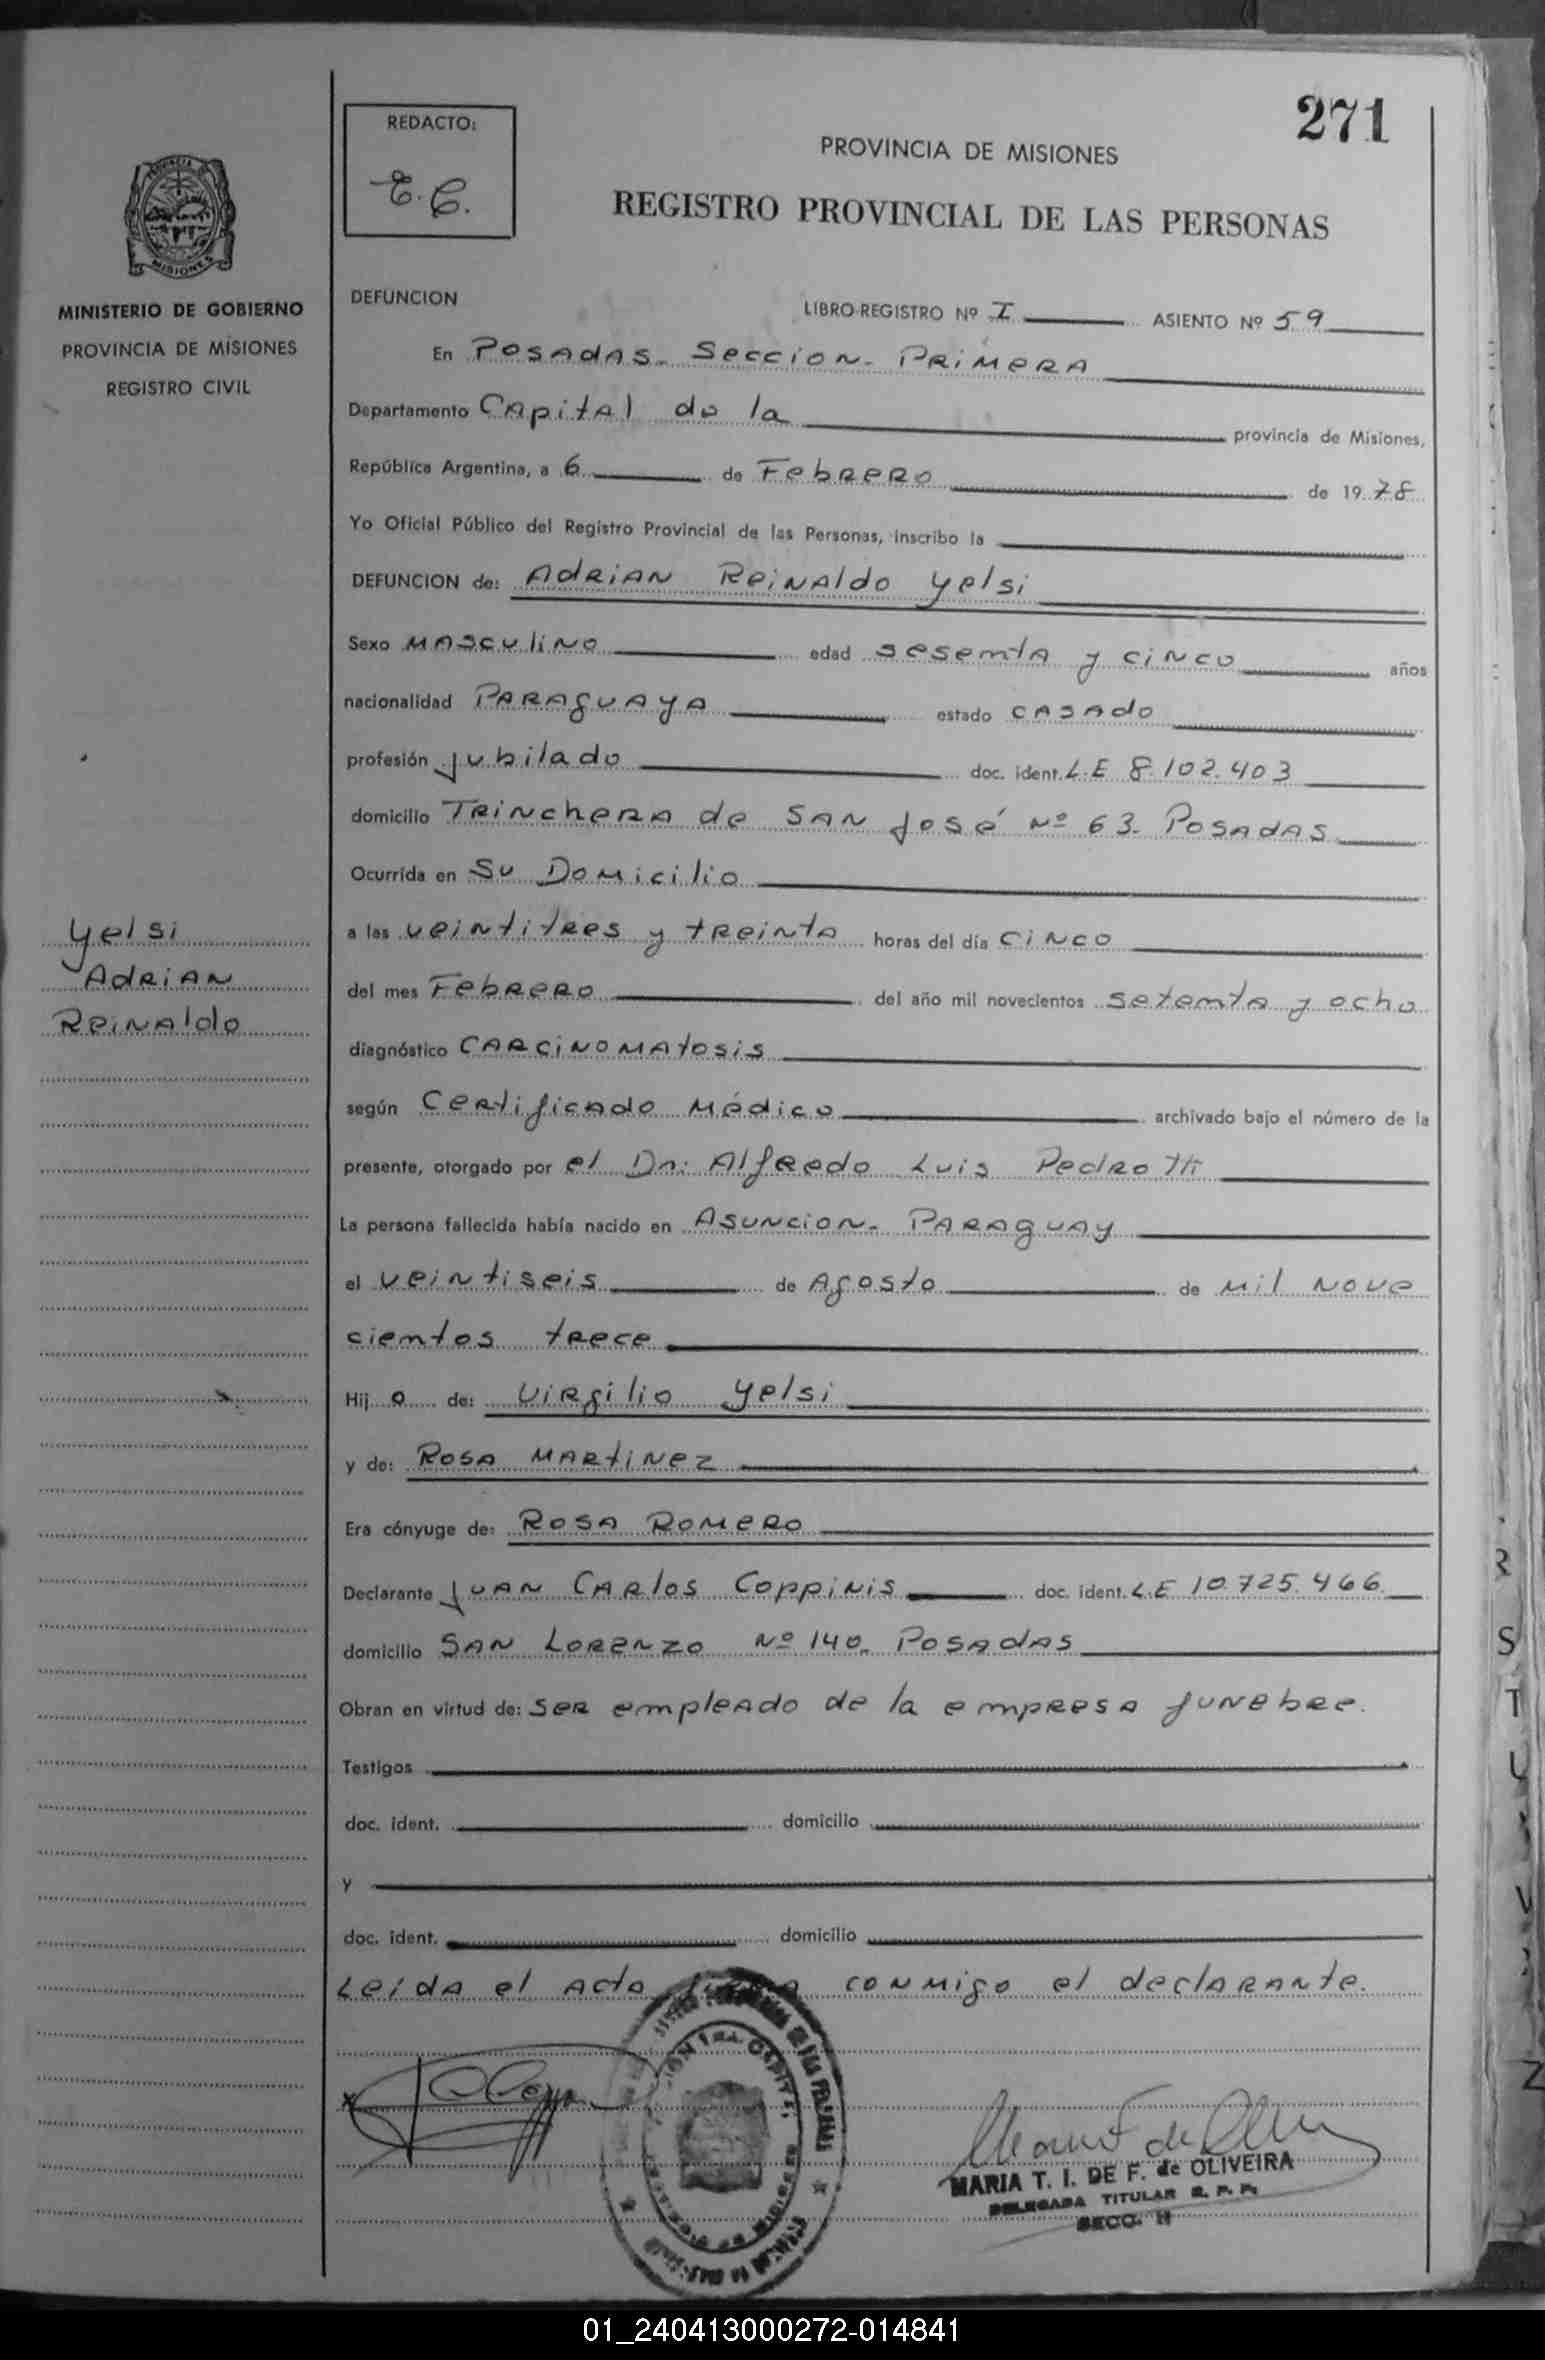 271
REDACTO:
E.C.
PROVINCIA DE MISIONES
REGISTRO PROVINCIAL DE LAS PERSONAS
PROVINCIA
MISIONES
MINISTERIO DE GOBIERNO
PROVINCIA DE MISIONES
REGISTRO CIVIL
DEFUNCION
LIBRO-REGISTRO Nº I ASIENTO Nº 59
En Posadas. Seccion. Primera
Departamento Capital de la provincia de Misiones,
República Argentina, a 6 de Febrero de 1978
Yo Oficial Público del Registro Provincial de las Personas, inscribo la
DEFUNCION de: Adrian Reinaldo Yelsi
Sexo Masculino edad sesenta y cinco años
nacionalidad Paraguaya estado casado
profesión jubilado doc. ident. L.E 8.102.403
domicilio Trinchera de San José Nº 63. Posadas
Ocurrida en Su Domicilio
a las veintitres y treinta horas del día cinco
del mes Febrero del año mil novecientos setenta y ocho
diagnóstico Carcinomatosis
según Certificado Médico archivado bajo el número de la
presente, otorgado por el Dr. Alfredo Luis Pedrotti
La persona fallecida había nacido en Asuncion. Paraguay
el veintiseis de Agosto de mil nove
cientos trece
Hij o de: Virgilio Yelsi
y de: Rosa Martinez
Era cónyuge de: Rosa Romero
Declarante Juan Carlos Coppinis doc. ident. L.E 10.725.466
domicilio San Lorenzo Nº 140. Posadas
Obran en virtud de: ser empleado de la empresa funebre.
Testigos
doc. ident. domicilio
y
doc. ident. domicilio
Leida el acta firma conmigo el declarante.
Yelsi
Adrian
Reinaldo
MARIA T. I. DE F. de OLIVEIRA
DELEGADA TITULAR R. P. P.
SECC.
R
S
T
Z
01_240413000272-014841